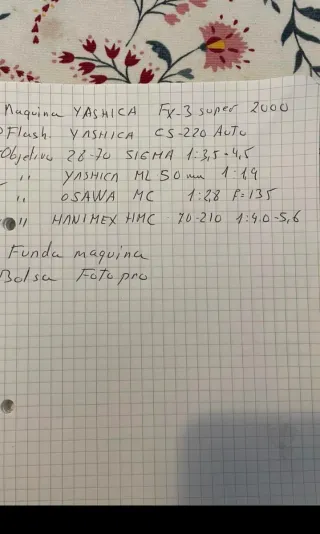 Maquina YASHICA FX-3 super 2000
Flash. YASHICA CS-220 AUTO
Objetivo 28-70 SIGMA 1:3,5-4,5
" YASHICA ML 50 mm 1:1,9
" OSAWA MC 1:2,8 F=135
" HANIMEX HMC 70-210 1:4.0-5,6
Funda maquina
Bolsa Fotopro